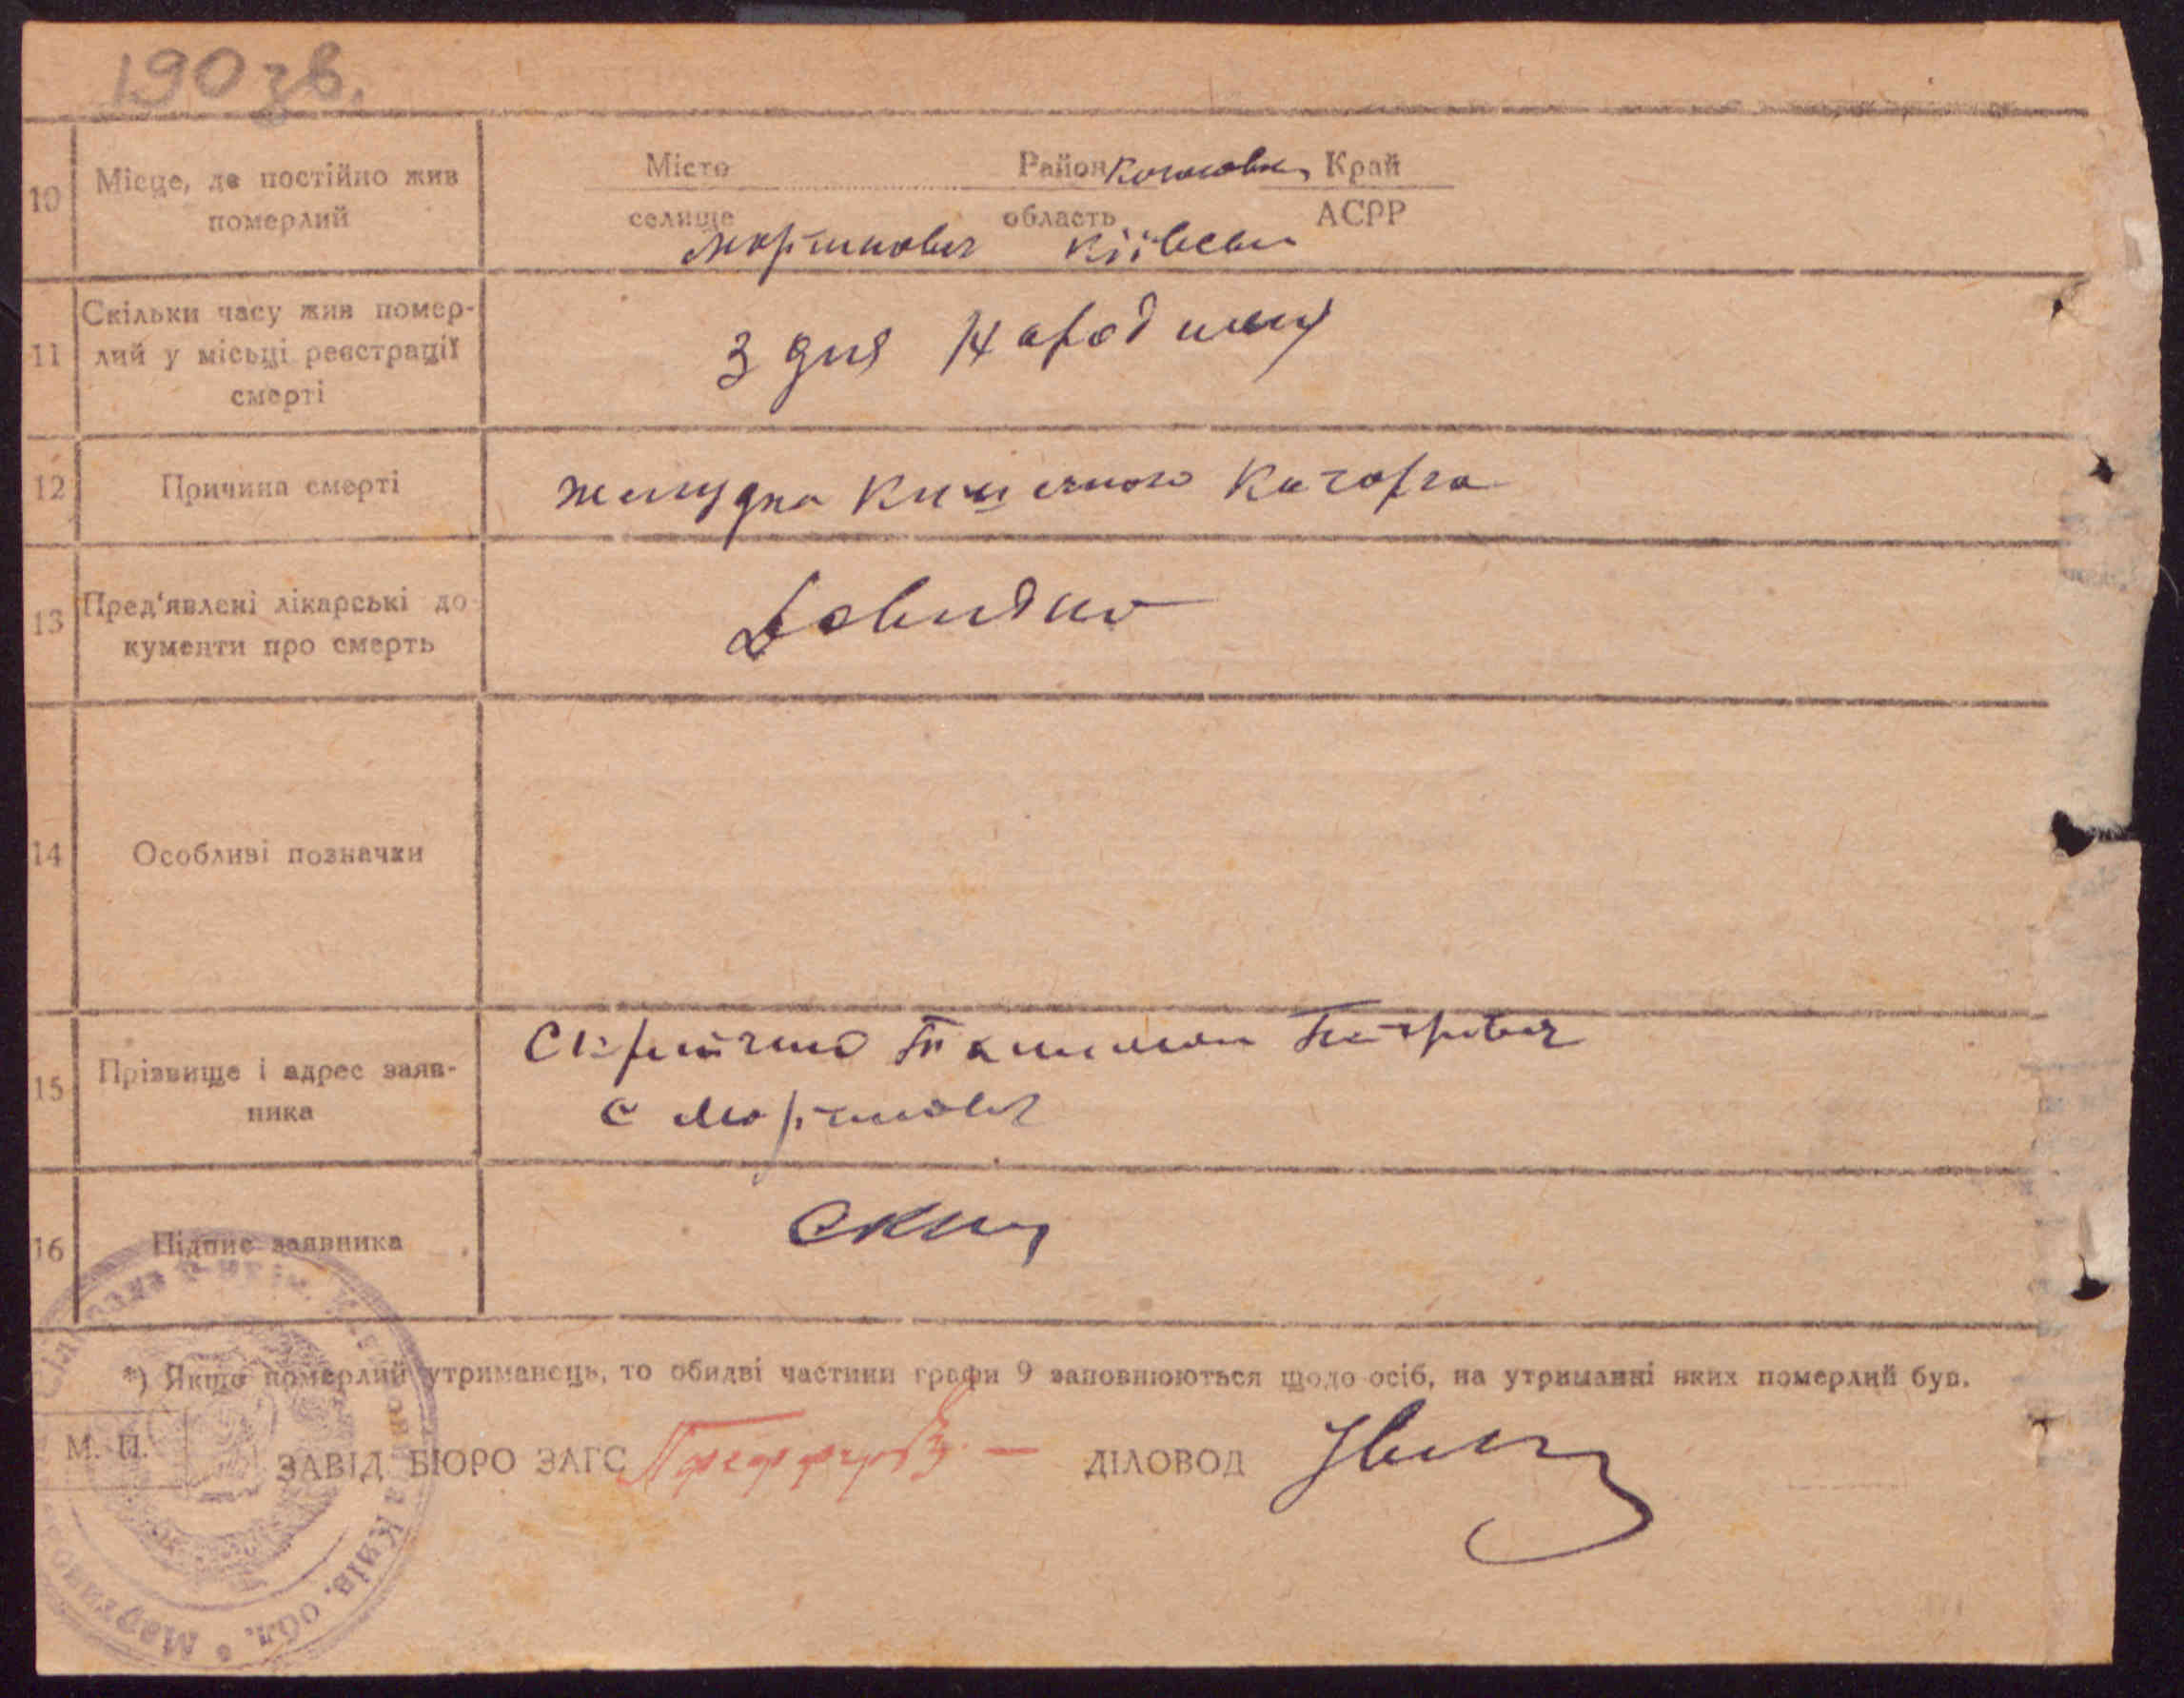 190 зв.
10 Місце, де постійно жив померлий
Місто Район Край
селище область АСРР
Мартинович Київськ
11 Скільки часу жив помер-
лий у місьці реєстрації
смерті
З дня Народження
12 Причина смерті
желудка Кишечного Катара
13 Пред'явлені лікарські до
кументи про смерть
Довидка
14 Особливі позначки
15 Прізвище і адрес заяв-
ника
Петрович
с Мартинович
16 Підпис заявника
*) Якщо померлий утриманець, то обидві частини графи 9 заповнюються щодо осіб, на утриманні яких померлий був.
М. П.
ЗАВІД БЮРО ЗАГС ДІЛОВОД
Київ. обл.